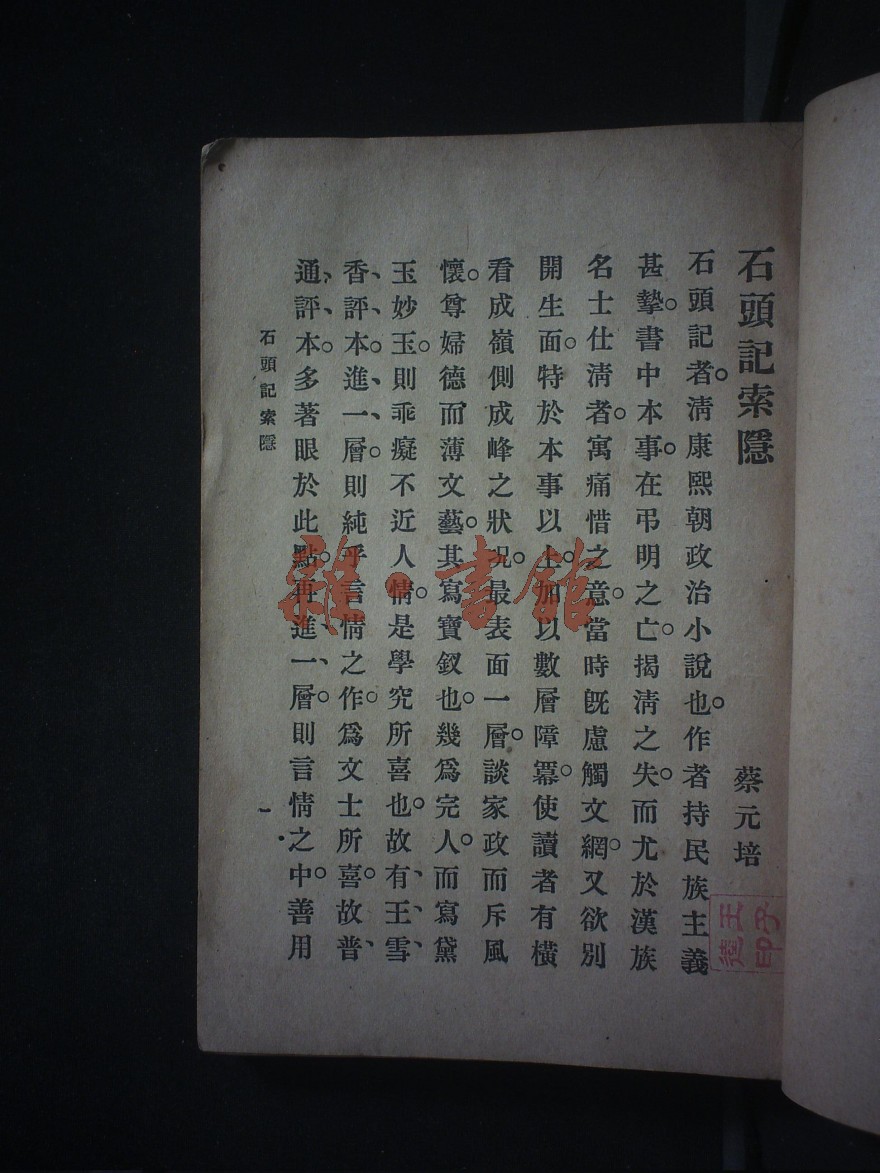 石頭記索隱
蔡元培
石頭記者。淸康熙朝政治小說也。作者持民族主義
甚摯。書中本事。在弔明之亡。揭淸之失。而尤於漢族
名士仕淸者。寓痛惜之意。當時旣慮觸文網。又欲別
開生面。特於本事以上。加以數層障冪。使讀者有橫
看成嶺側成峰之狀況。最表面一層。談家政而斥風
懷。尊婦德而薄文藝。其寫寶釵也。幾爲完人。而寫黛
玉妙玉。則乖癡不近人情。是學究所喜也。故有、王、雪、
香、評、本。進、一、層。則純乎言情之作。爲文士所喜。故普、
通、評、本。多著眼於此點。再、進、一、層。則言情之中。善用
石頭記索隱
一
雜·書館